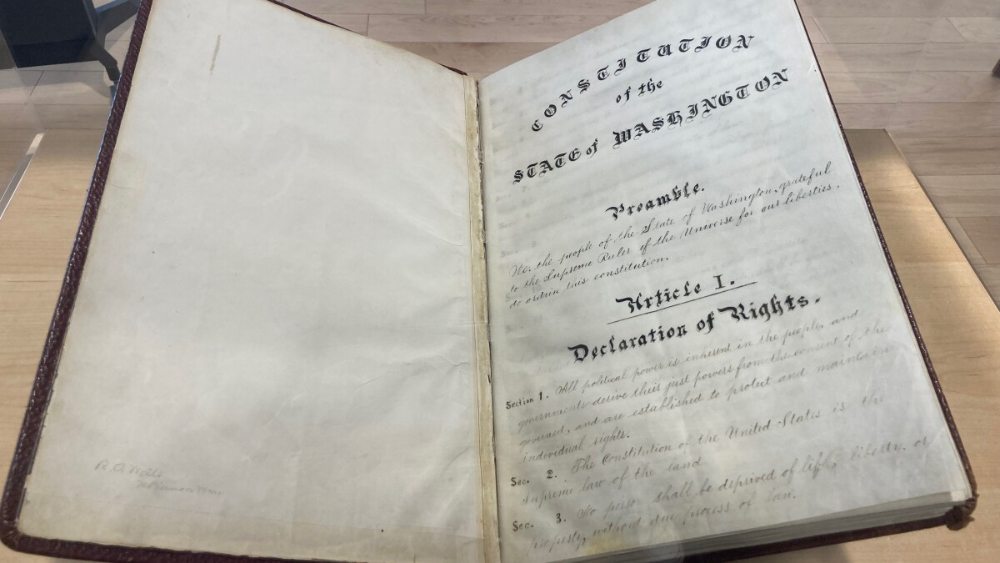 CONSTITUTION
of the
STATE of WASHINGTON
Preamble.
We, the people of the State of Washington, grateful
to the Supreme Ruler of the Universe for our liberties,
do ordain this constitution.
Article I.
Declaration of Rights.
Section 1. All political power is inherent in the people, and
governments derive their just powers from the consent of the
governed, and are established to protect and maintain
individual rights.
Sec. 2. The Constitution of the United States is the
supreme law of the land
Sec. 3. No person shall be deprived of life, liberty, or
property, without due process of law.